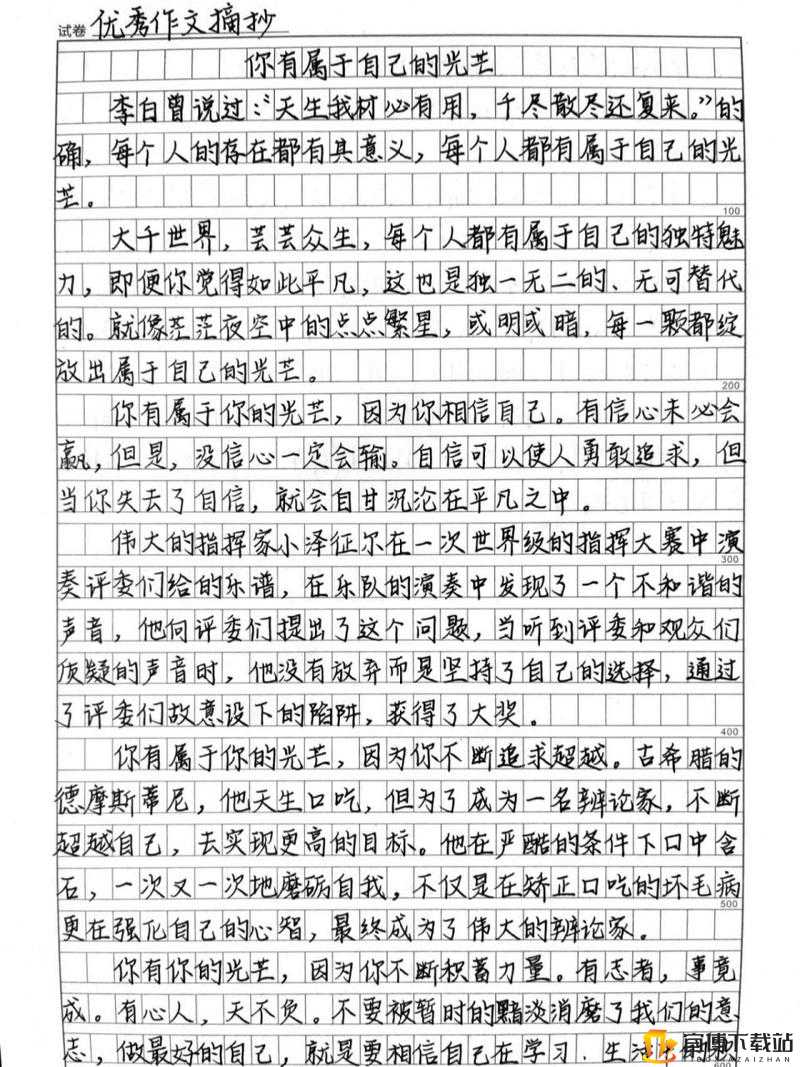 试卷 优秀作文摘抄
你有属于自己的光芒
李白曾说过:“天生我材必有用,千尽散尽还复来。”的
确,每个人的存在都有其意义,每个人都有属于自己的光
芒。
100
大千世界,芸芸众生,每个人都有属于自己的独特魅
力,即便你觉得如此平凡,这也是独一无二的、无可替代
的。就像茫茫夜空中的点点繁星,或明或暗,每一颗都绽
放出属于自己的光芒。
200
你有属于你的光芒,因为你相信自己。有信心未必会
赢,但是,没信心一定会输。自信可以使人勇敢追求,但
当你失去了自信,就会自甘沉沦在平凡之中。
伟大的指挥家小泽征尔在一次世界级的指挥大赛中演
300
奏评委们给的乐谱,在乐队的演奏中发现了一个不和谐的
声音,他向评委们提出了这个问题,当听到评委和观众们
质疑的声音时,他没有放弃而是坚持了自己的选择,通过
了评委们故意设下的陷阱,获得了大奖。
400
你有属于你的光芒,因为你不断追求超越。古希腊的
德摩斯蒂尼,他天生口吃,但为了成为一名辨论家,不断
超越自己,去实现更高的目标。他在严酷的条件下口中含
石,一次又一次地磨砺自我,不仅是在矫正口吃的坏毛病
500
更在强化自己的心智,最终成为了伟大的辨论家。
你有你的光芒,因为你不断积蓄力量。有志者,事竟
成。有心人,天不负。不要被暂时的黯淡消磨了我们的意
志,做最好的自己,就是要相信自己在学习.生活
下载站
600